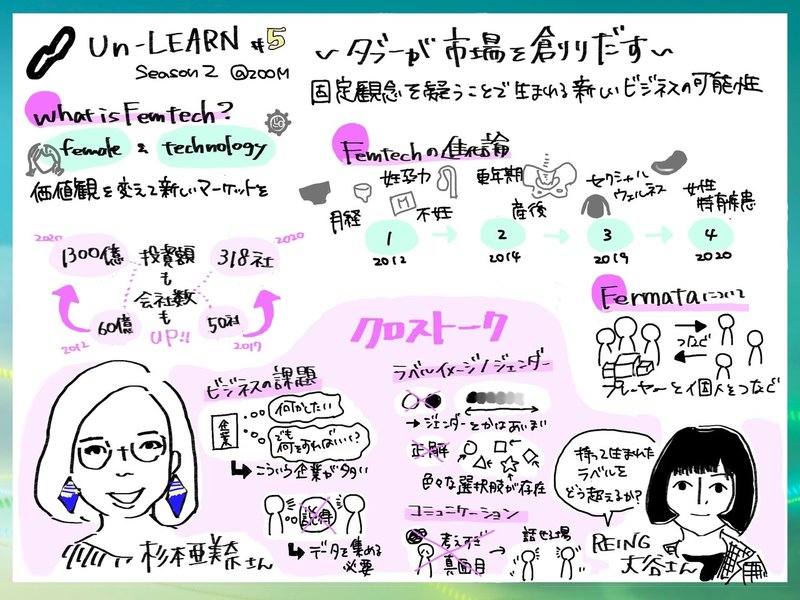 Un-LEARN #5
Season 2 @ZOOM
〜タブーが市場を創りだす〜
固定観念を疑うことで生まれる新しいビジネスの可能性
what is Femtech?
female & technology
価値観を変えて新しいマーケットを
2020
1300億
投資額
も
会社数
も
UP!!
318社
2020
60億
2012
50社
2017
Femtechの進化論
月経
妊孕力
不妊
更年期
産後
セクシャル
ウェルネス
女性
特有疾患
1
2
3
4
2012
2014
2019
2020
Fermataについて
つなぐ
プレーヤーと個人をつなぐ
クロストーク
ビジネスの課題
企業
何かしたい
でも
何をすればいい?
こういう企業が多い
説得
データを集める
必要
ラベルイメージ/ジェンダー
→ジェンダーとかはあいまい
正解
色々な選択肢が存在
コミュニケーション
考えすぎ
真面目
→
話せる場
杉本亜美奈さん
持って生まれた
ラベルを
どう超えるか?
REING
大谷さん